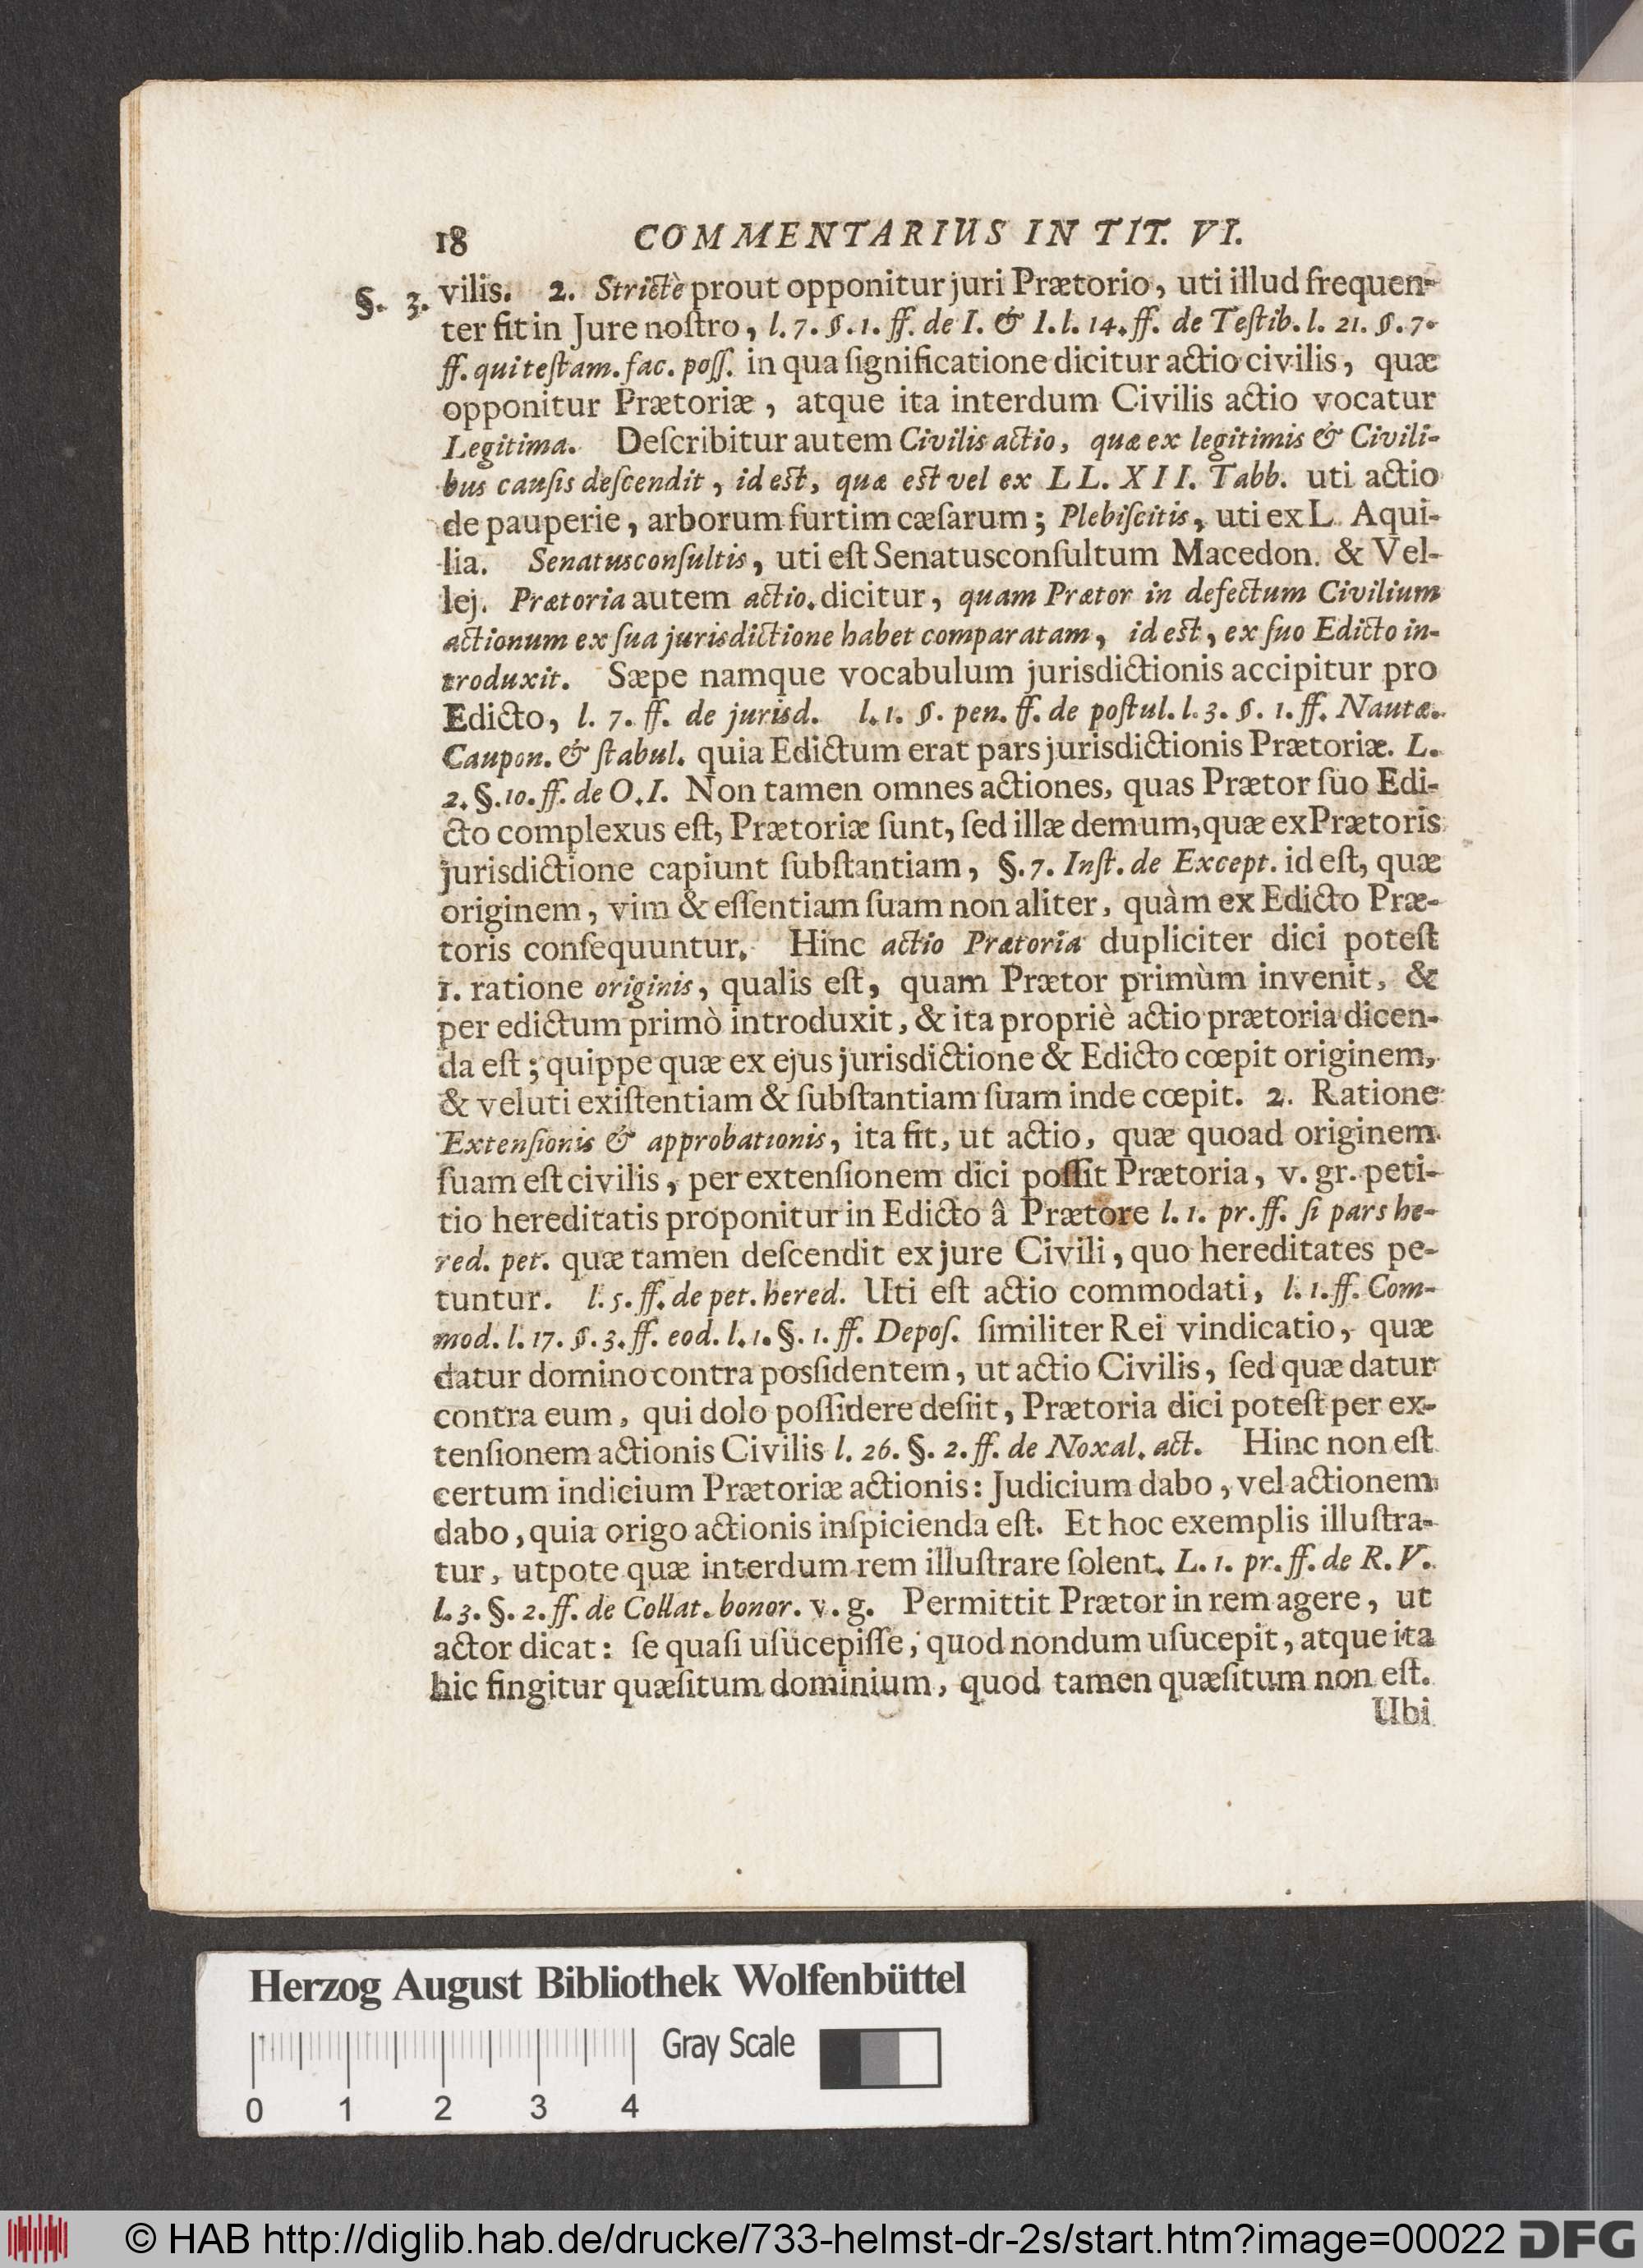 18 COMMENTARIUS IN TIT. VI.
§. 3. vilis. 2. Strictè prout opponitur juri Prætorio, uti illud frequen-
ter fit in Jure noſtro, l. 7. §. 1. ff. de I. & I. l. 14. ff. de Teſtib. l. 21. §. 7.
ff. qui teſtam. fac. poſſ. in qua ſignificatione dicitur actio civilis, quæ
opponitur Prætoriæ, atque ita interdum Civilis actio vocatur
Legitima. Deſcribitur autem Civilis actio, quæ ex legitimis & Civili-
bus cauſis deſcendit, id est, quæ est vel ex LL. XII. Tabb. uti actio
de pauperie, arborum furtim cæſarum; Plebiſcitis, uti ex L. Aqui-
lia. Senatusconſultis, uti eſt Senatusconſultum Macedon. & Vel-
lej. Prætoria autem actio. dicitur, quam Prætor in defectum Civilium
actionum ex ſua jurisdictione habet comparatam, id est, ex ſuo Edicto in-
troduxit. Sæpe namque vocabulum jurisdictionis accipitur pro
Edicto, l. 7. ff. de jurisd. l. 1. §. pen. ff. de poſtul. l. 3. §. 1. ff. Nautæ.
Caupon. & ſtabul. quia Edictum erat pars jurisdictionis Prætoriæ. L.
2. §. 10. ff. de O. I. Non tamen omnes actiones, quas Prætor ſuo Edi-
cto complexus eſt, Prætoriæ ſunt, ſed illæ demum, quæ ex Prætoris
jurisdictione capiunt ſubſtantiam, §. 7. Inſt. de Except. id eſt, quæ
originem, vim & eſſentiam ſuam non aliter, quàm ex Edicto Præ-
toris conſequuntur. Hinc actio Prætoria dupliciter dici poteſt
1. ratione originis, qualis eſt, quam Prætor primùm invenit, &
per edictum primò introduxit, & ita propriè actio prætoria dicen-
da eſt; quippe quæ ex ejus jurisdictione & Edicto cœpit originem,
& veluti exiſtentiam & ſubſtantiam ſuam inde cœpit. 2. Ratione
Extenſionis & approbationis, ita fit, ut actio, quæ quoad originem
ſuam eſt civilis, per extenſionem dici poſſit Prætoria, v. gr. peti-
tio hereditatis proponitur in Edicto â Prætore l. 1. pr. ff. ſi pars he-
red. pet. quæ tamen deſcendit ex jure Civili, quo hereditates pe-
tuntur. l. 5. ff. de pet. hered. Uti eſt actio commodati, l. 1. ff. Com-
mod. l. 17. §. 3. ff. eod. l. 1. §. 1. ff. Depoſ. ſimiliter Rei vindicatio, quæ
datur domino contra posſidentem, ut actio Civilis, ſed quæ datur
contra eum, qui dolo poſſidere deſiit, Prætoria dici poteſt per ex-
tenſionem actionis Civilis l. 26. §. 2. ff. de Noxal. act. Hinc non eſt
certum indicium Prætoriæ actionis: Judicium dabo, vel actionem
dabo, quia origo actionis inſpicienda eſt. Et hoc exemplis illuſtra-
tur, utpote quæ interdum rem illuſtrare ſolent. L. 1. pr. ff. de R. V.
l. 3. §. 2. ff. de Collat. bonor. v. g. Permittit Prætor in rem agere, ut
actor dicat: ſe quaſi uſucepiſſe, quod nondum uſucepit, atque ita
hic fingitur quæſitum dominium, quod tamen quæſitum non eſt.
Ubi
Herzog August Bibliothek Wolfenbüttel
Gray Scale
0 1 2 3 4
© HAB http://diglib.hab.de/drucke/733-helmst-dr-2s/start.htm?image=00022 DFG